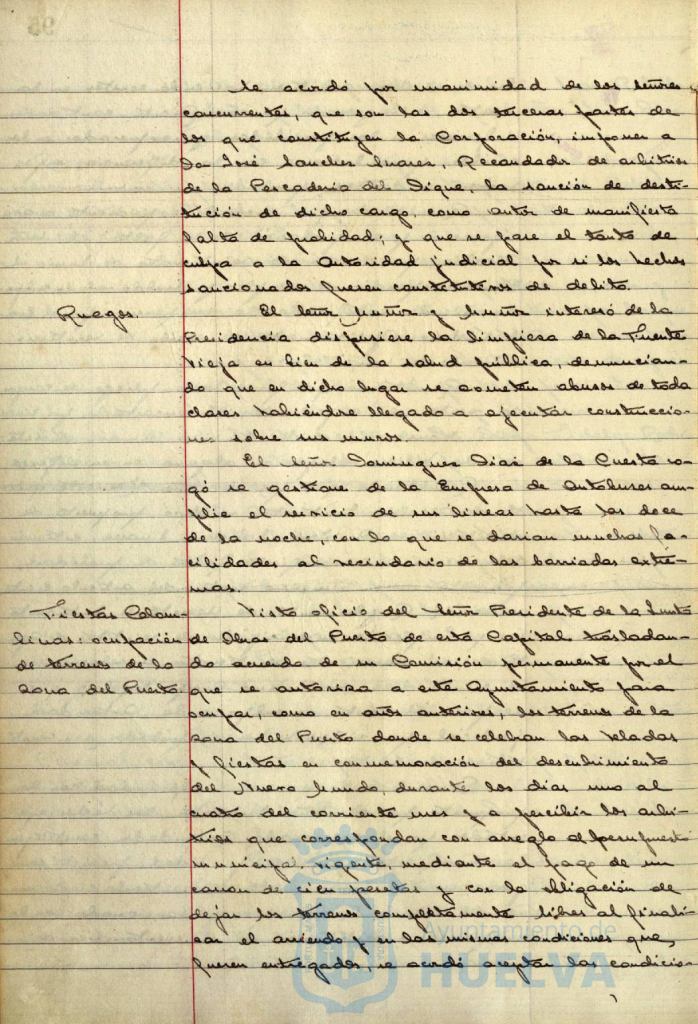 Se acordó por unanimidad de los señores
concurrentes, que son las dos terceras partes de
los que constituyen la Corporación, imponer a
Don José Sanchez Suarez, Recaudador de arbitrios
de la Pescadería del Dique, la sanción de desti-
tución de dicho cargo, como autor de manifiesta
falta de probidad; y que se pase el tanto de
culpa a la Autoridad judicial por si los hechos
sancionados fueren constitutivos de delito.
Ruegos.
El Señor Muñoz y Muñoz interesó de la
Presidencia dispusiere la limpieza de la Fuente
Vieja en bien de la salud pública, denuncian-
do que en dicho lugar se cometen abusos de toda
clases habiéndose llegado a ejecutar construccio-
nes sobre sus muros.
El Señor Dominguez Diaz de la Cuesta ro-
gó se gestione de la Empresa de Autobuses am-
plie el servicio de sus lineas hasta las doce
de la noche, con lo que se darian muchas fa-
cilidades al vecindario de las barriadas extre-
mas.
Fiestas Colom-
binas: ocupación
de terrenos de la
zona del Puerto.
Visto oficio del Señor Presidente de la Junta
de Obras del Puerto de esta Capital trasladan-
do acuerdo de su Comisión permanente por el
que se autoriza a este Ayuntamiento para
ocupar, como en años anteriores, los terrenos de la
zona del Puerto donde se celebran las Veladas
y fiestas en conmemoración del descubrimiento
del Nuevo Mundo, durante los dias uno al
cuatro del corriente mes y a percibir los arbi-
trios que correspondan con arreglo al presupuesto
municipal vigente, mediante el pago de un
canon de cien pesetas y con la obligación de
dejar los terrenos completamente libres al finali-
zar el arriendo y en las mismas condiciones que
fueren entregados, se acordó aceptar las condicio-
Ayuntamiento de
HUELVA